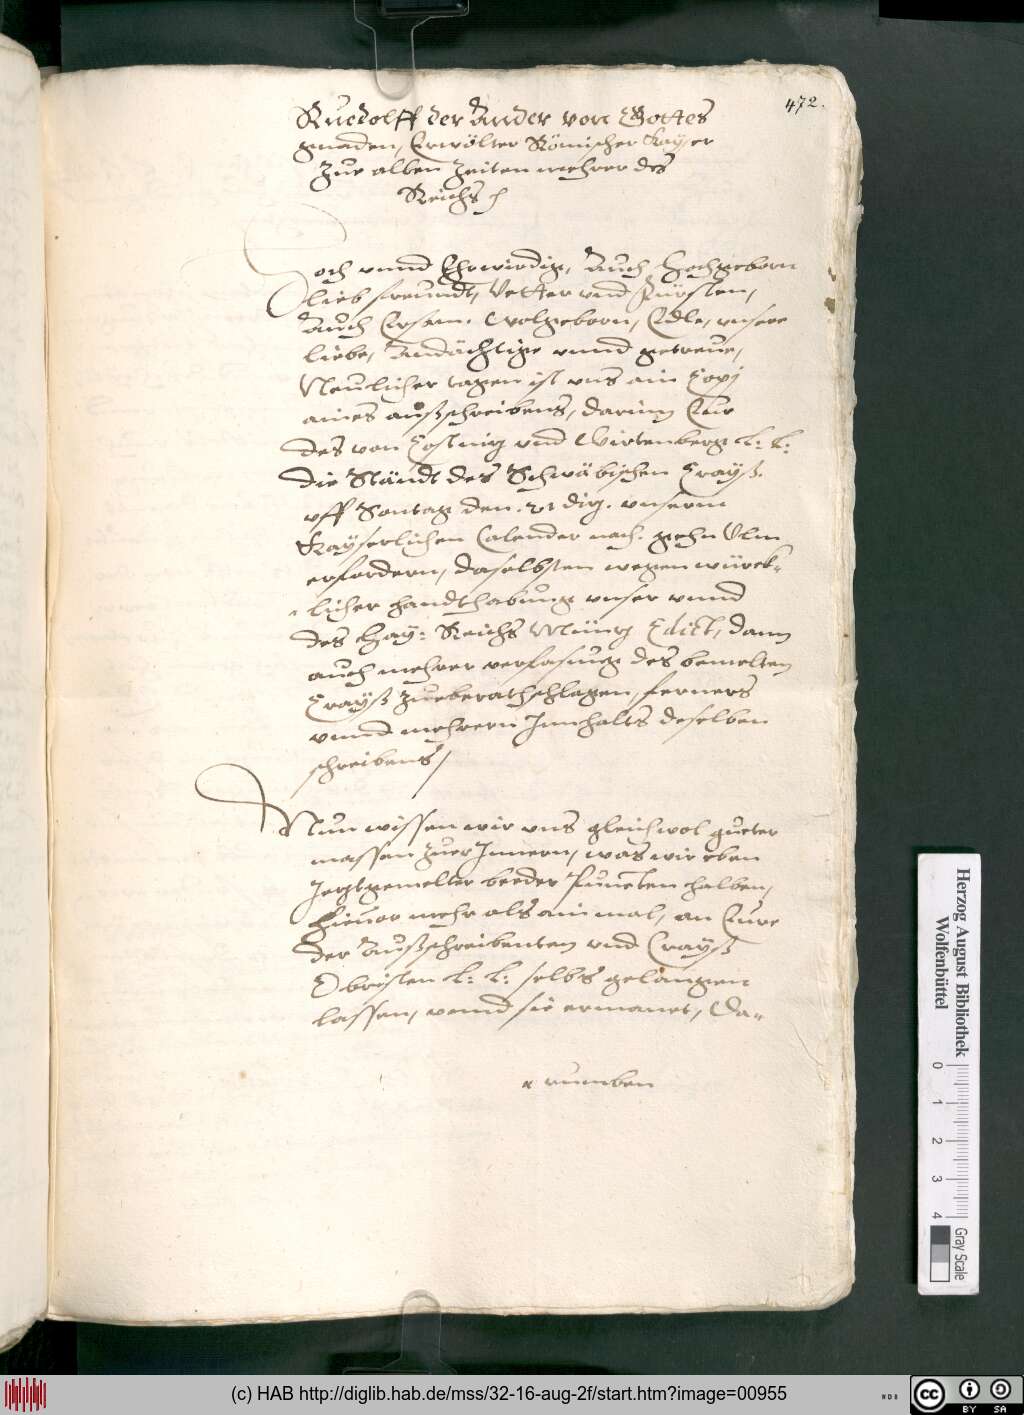 472.
Ruedolff der Ander von Gottes
gnaden, Erwölter Römischer Kayser
Zue allen Zeiten mehrer des
Reichs
Hoch unnd Ehrwirdig, Auch Hochgeborn
lieb freundt, Vetter und Fürsten,
Auch Ersam. Wolgeborn, Edle, unsere
liebe, Andächtige unnd getreue,
Neulicher tagen ist uns ain Copj
aines außschreibens, darinn Eur
des von Costnitz und Wirtenberg L: L:
die Ständt des Schwäbischen Crayß.
uff Sontag den .21 diß. unserm
Kayserlichen Calender nach. gehn Ulm
erfordern, daselbsten wegen würck-
licher handthabung unser unnd
des Hay: Reichs Müntz Edict, dann
auch mehrer verfasung des bemelten
Crayß zueberathschlagen, ferners
unnd mehrern Innhalts deselben
schreibens,
Nun wissen wir uns gleichwol gueter
massen zuer Innern, was wir eben
Jetztgemelter beeder Puncten halben,
hievor mehr als ain mal, an Eure
der Außschreibenten und Crayß
Obristen L: L: selbs gelangen
lassen, unnd sie ermanet, Da-
rumben
Herzog August Bibliothek
Wolfenbüttel
0 1 2 3 4
Gray Scale
(c) HAB http://diglib.hab.de/mss/32-16-aug-2f/start.htm?image=00955
WDB
cc BY SA